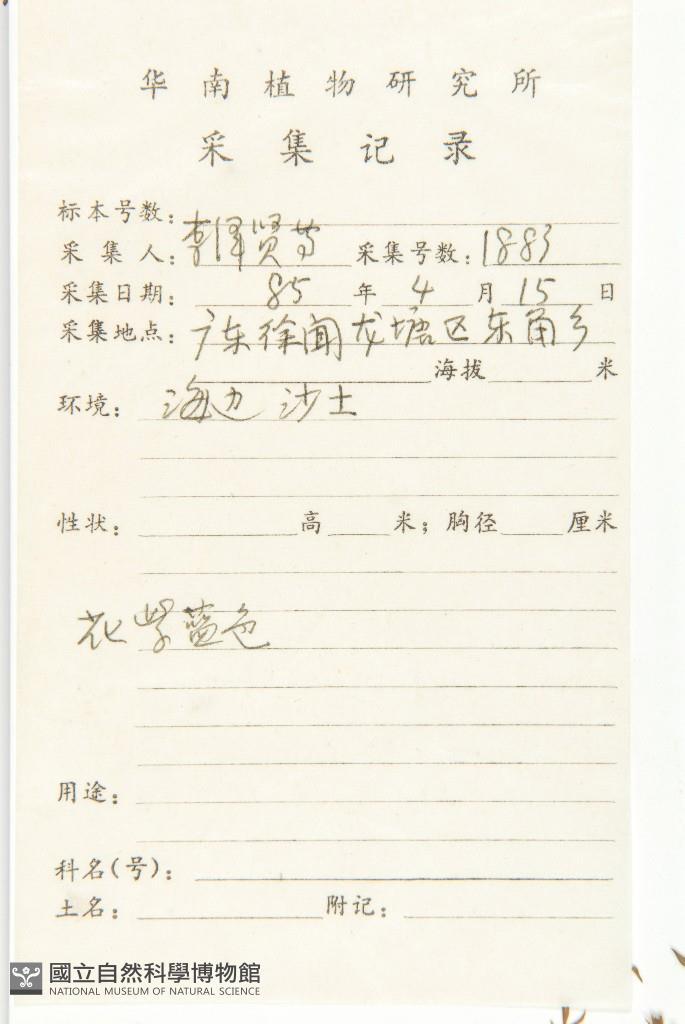 华南植物研究所
采集记录
标本号数：
采集人：李泽贤等 采集号数：1883
采集日期：85年4月15日
采集地点：广东徐闻龙塘区东角乡
海拔 米
环境：海边 沙土
性状： 高 米；胸径 厘米
花紫蓝色
用途：
科名(号)：
土名： 附记：
國立自然科學博物館
NATIONAL MUSEUM OF NATURAL SCIENCE